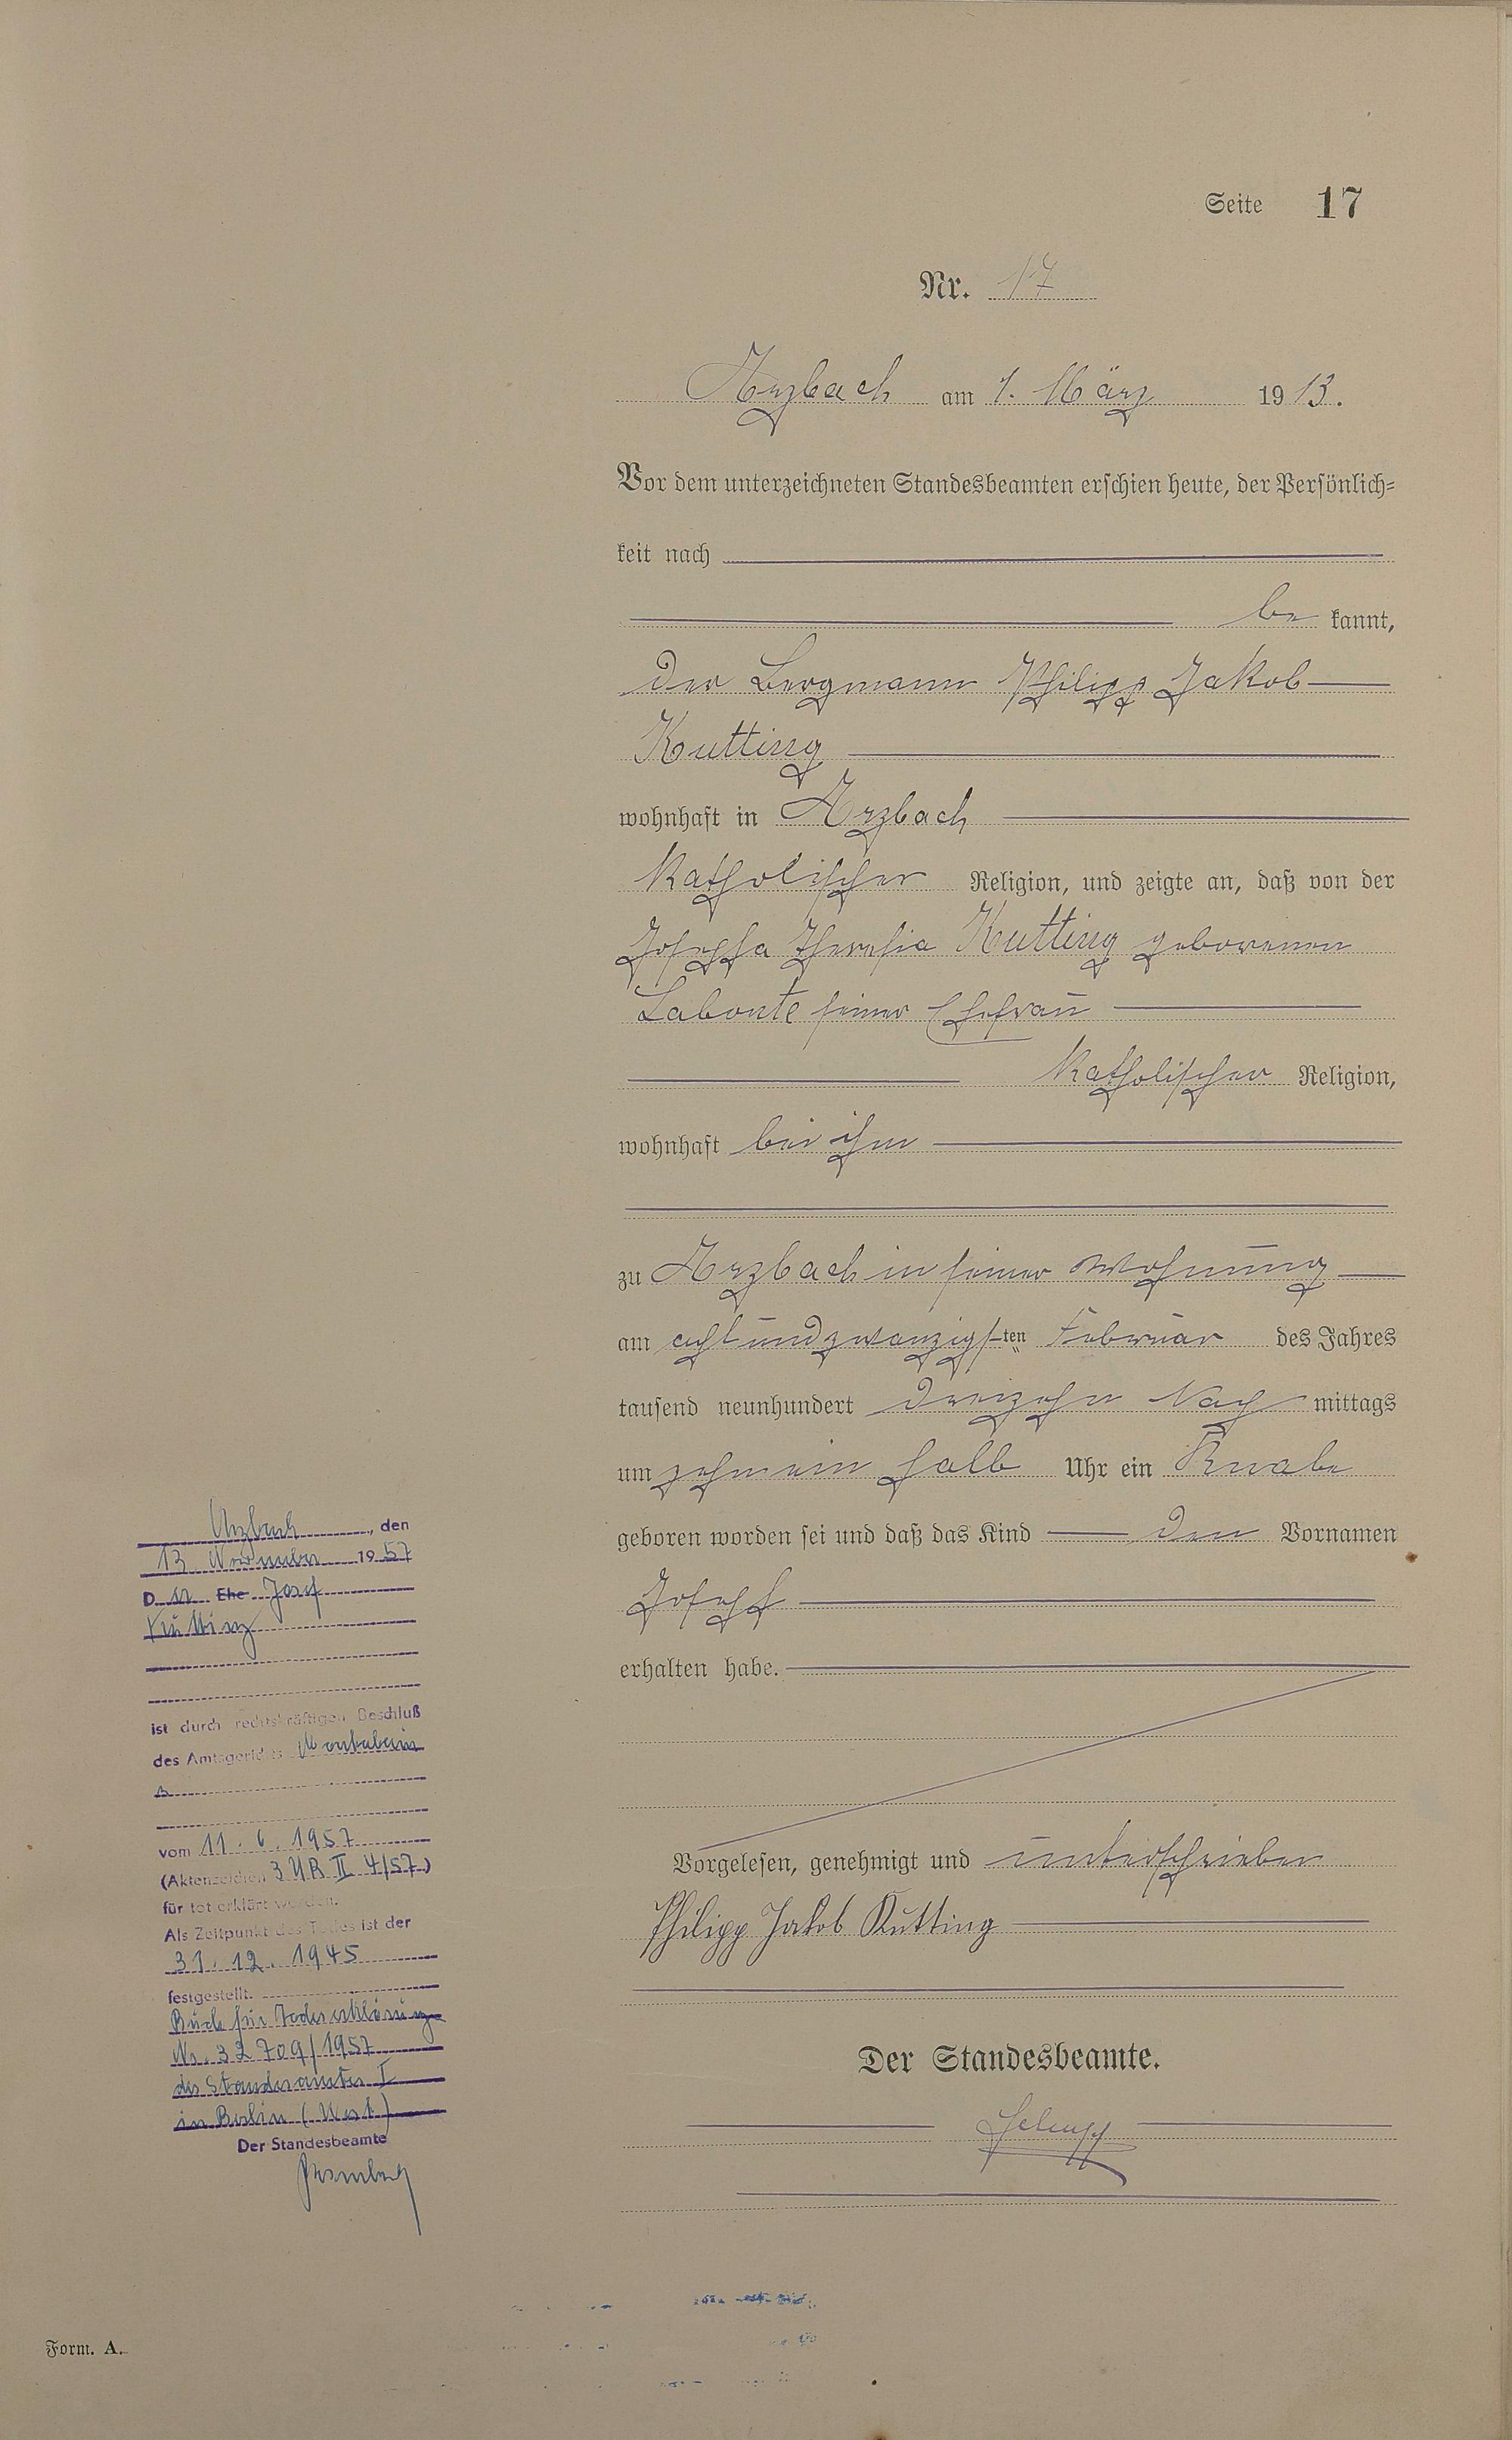 Seite 17
Nr. 17
Arzbach am 1. März 1913.
Vor dem unterzeichneten Standesbeamten erschien heute, der Persönlich-
keit nach
be kannt,
der Bergmann Philipp Jakob
Kutting
wohnhaft in Arzbach
katholischer Religion, und zeigte an, daß von der
Josepha Theresia Kutting geborenen
Labonte seiner Ehefrau
katholischer Religion,
wohnhaft bei ihm
zu Arzbach in seiner Wohnung
am achtundzwanzigsten Februar des Jahres
tausend neunhundert dreizehn Nach mittags
um zehn ein halb Uhr ein Knabe
geboren worden sei und daß das Kind den Vornamen
Joseph
erhalten habe.
Vorgelesen, genehmigt und unterschrieben
Philipp Jakob Kutting
Der Standesbeamte.
Arzbach, den
13. November 1957
D er Ehe Josef
Kutting
ist durch rechtskräftigen Beschluß
des Amtsgerichts Montabaur
vom 11. 6. 1957
(Aktenzeichen 3 UR II 4/57)
für tot erklärt worden.
Als Zeitpunkt des Todes ist der
31. 12. 1945
festgestellt.
Buch für Todeserklärung
Nr. 32 709/1957
des Standesamtes I
in Berlin (West)
Der Standesbeamte
Form. A.